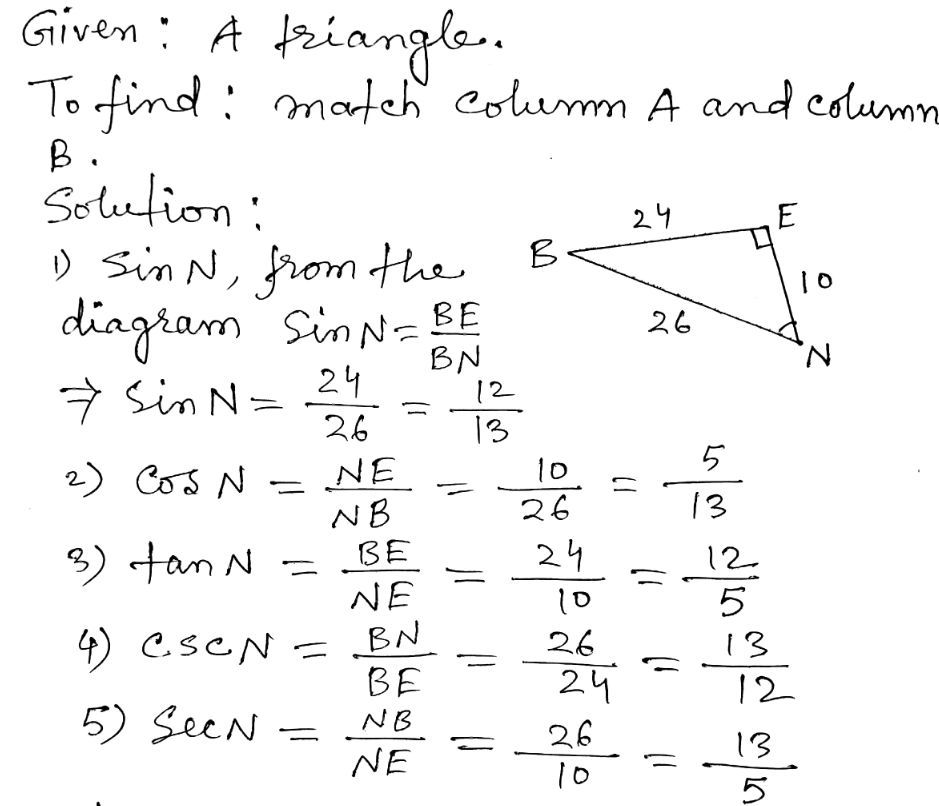 Given : A triangle.
To find : match column A and column
B.
Solution :
1) Sin N, from the
diagram Sin N = BE/BN
⇒ Sin N = 24/26 = 12/13
B 24 E
10
26
N
2) Cos N = NE/NB = 10/26 = 5/13
3) tan N = BE/NE = 24/10 = 12/5
4) CSC N = BN/BE = 26/24 = 13/12
5) Sec N = NB/NE = 26/10 = 13/5